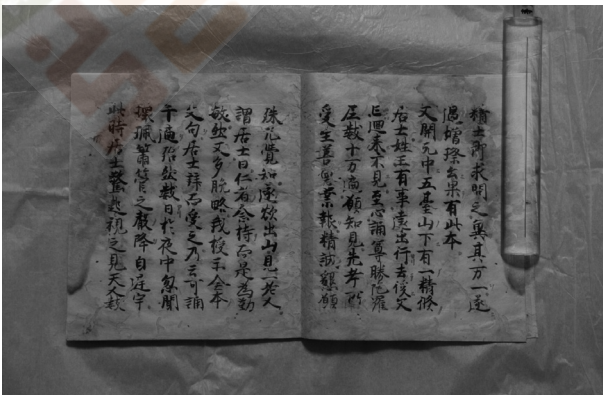 精士即求聞之冀其万一遂
遇僧琮出果有此本
又開元中五臺山下有一精修
居士姓王有事遠出行去後父
亡迴来不見至心誦尊勝陀羅
尼數十万遍願知見先考所
受生善惡業報精誠懇願
殊无覺知遂欲出山見一老人
謂居士曰仁者念持而是為勤
敏然文多脫略我授示全本
文句居士拜而受之乃云可誦
千遍 數日於夜中忽聞
環珮簫管之聲降自庭宇
此時居士驚起視之見天人數